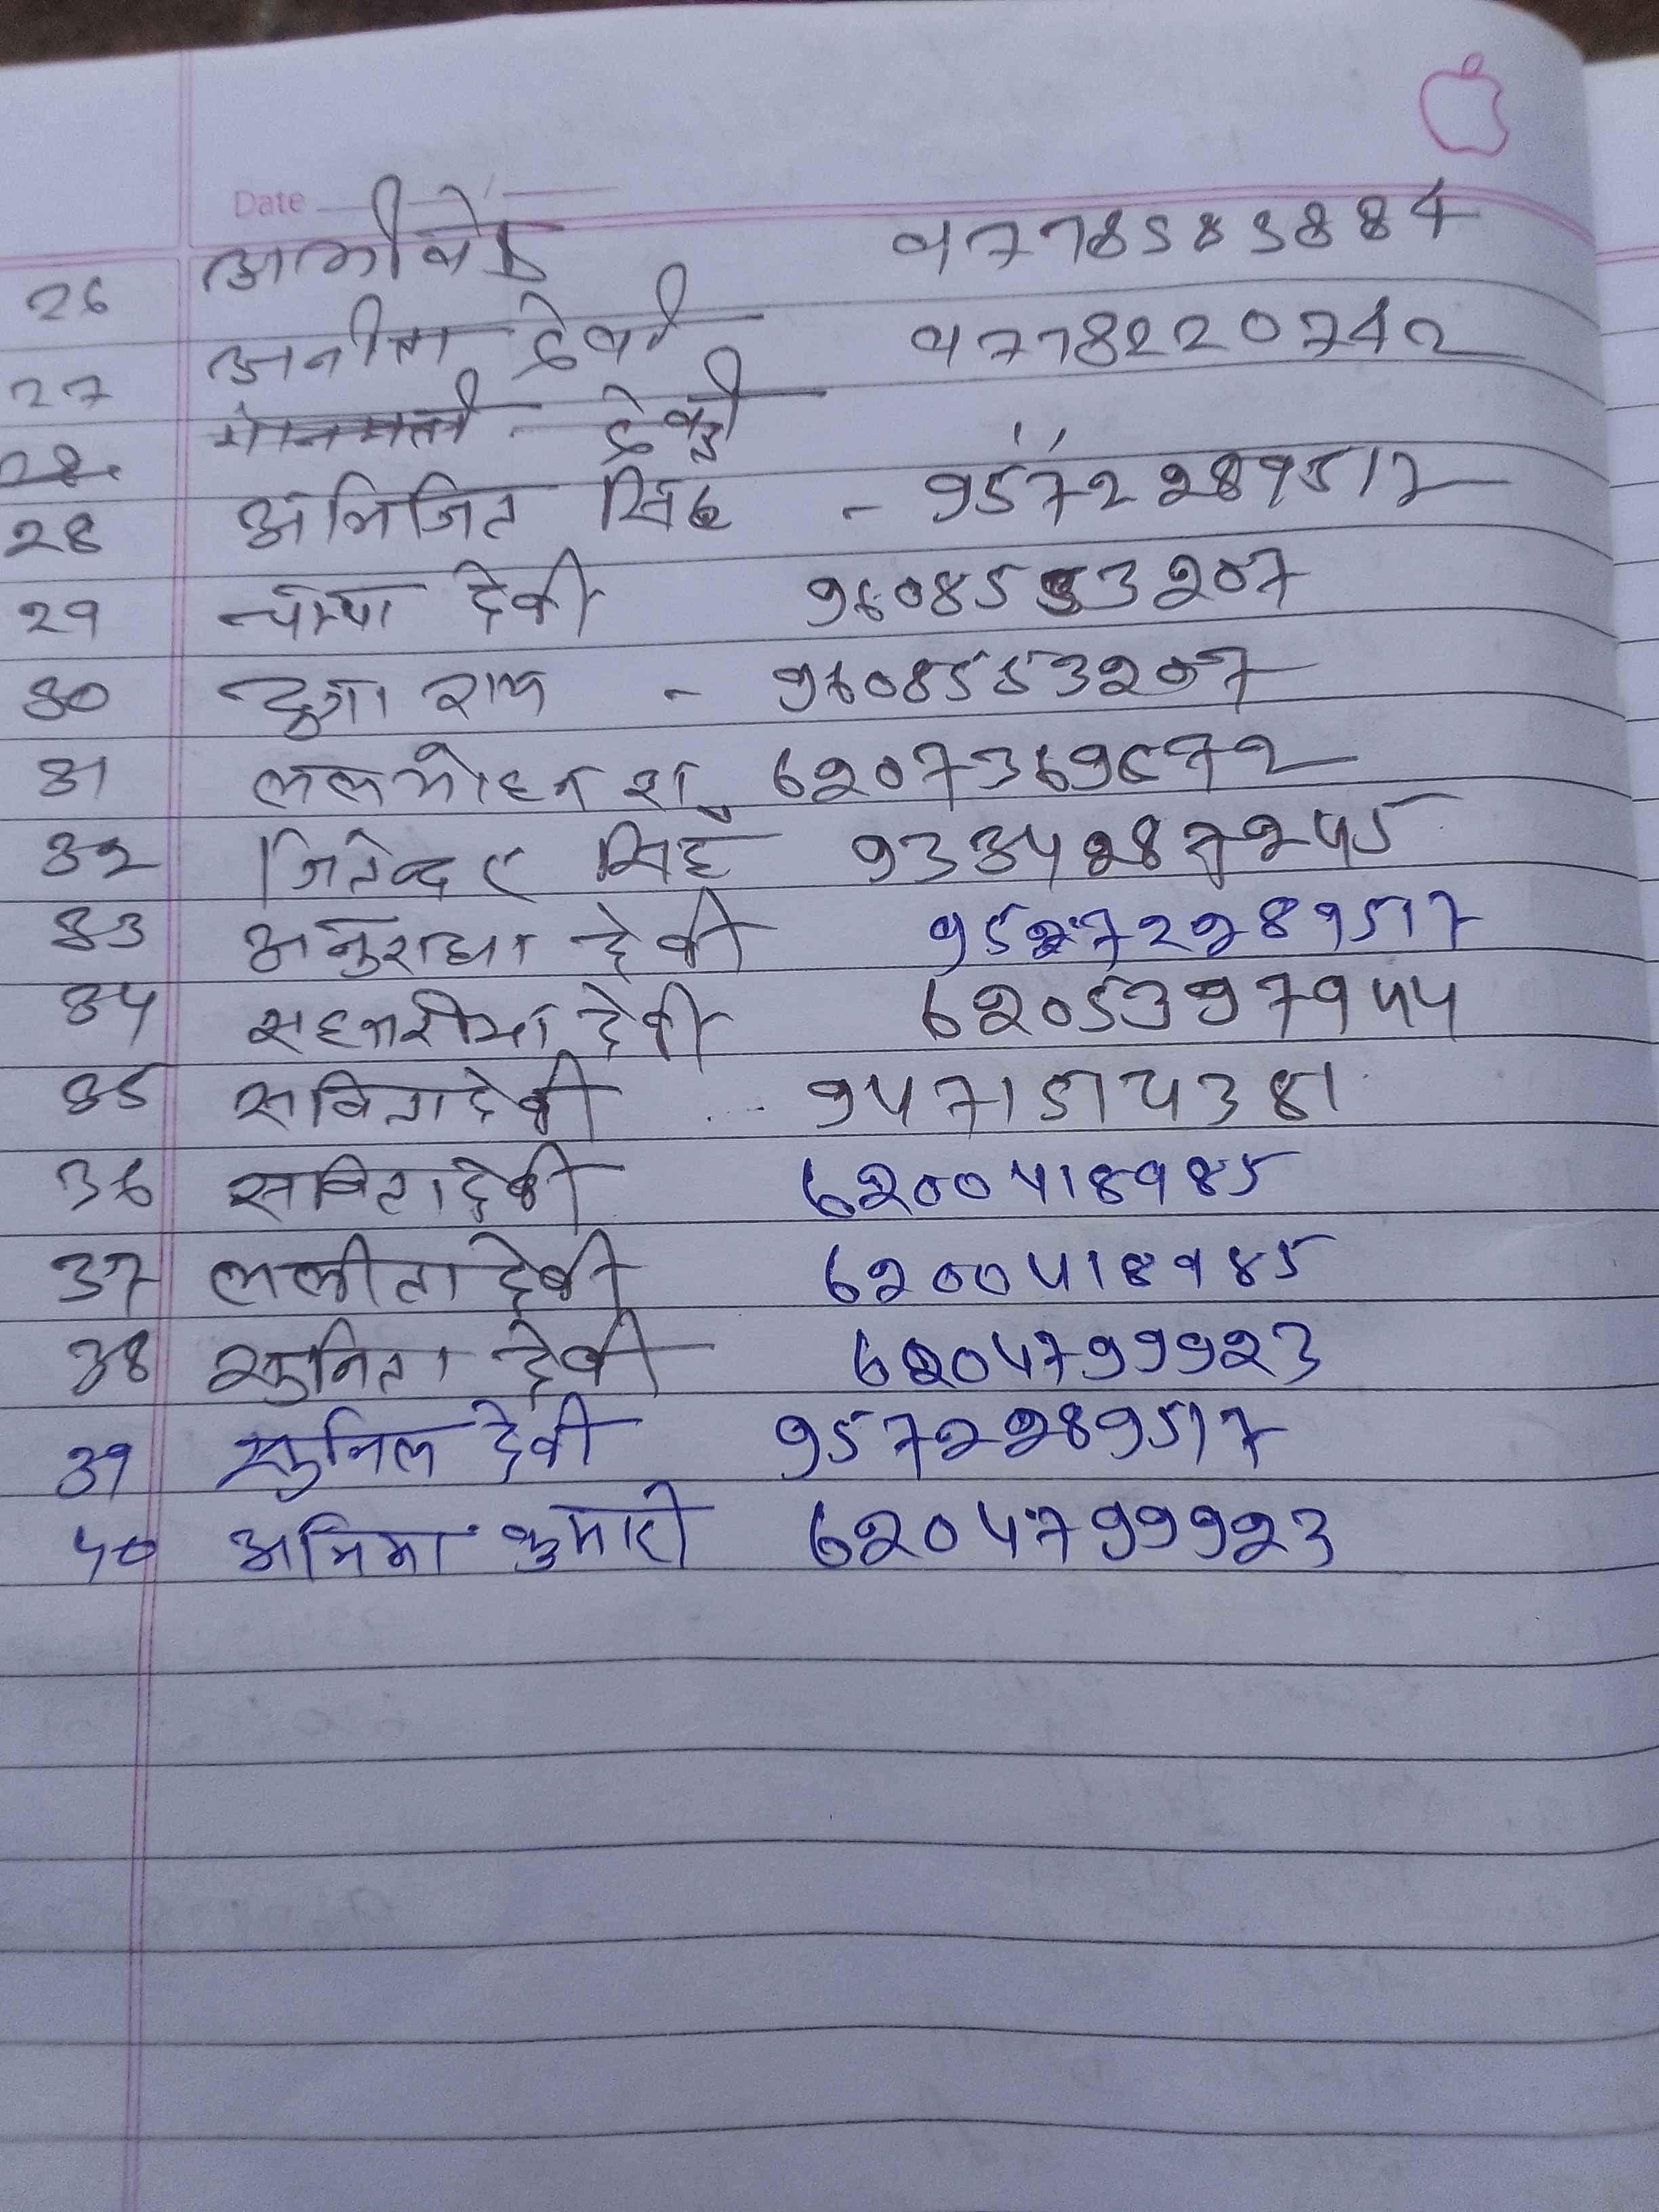 Date
26 9778583884
27 अनीता देवी 9778220742
28 देवी
28 अभिजित सिंह - 9572289512
29 चम्पा देवी 9608553207
30 दुर्गा राम - 9608553207
31 ललमोहन शा 6207369672
32 जितेन्दर सिंह
33 अनुराधा देवी
34 देवी 6205397944
35 सविता देवी
36 सविता देवी 6200418985
37 ललीता देवी 6200418985
38 सुनिता देवी 6204799923
39 सुनिल देवी 9572289517
40 कुमारी 6204799923